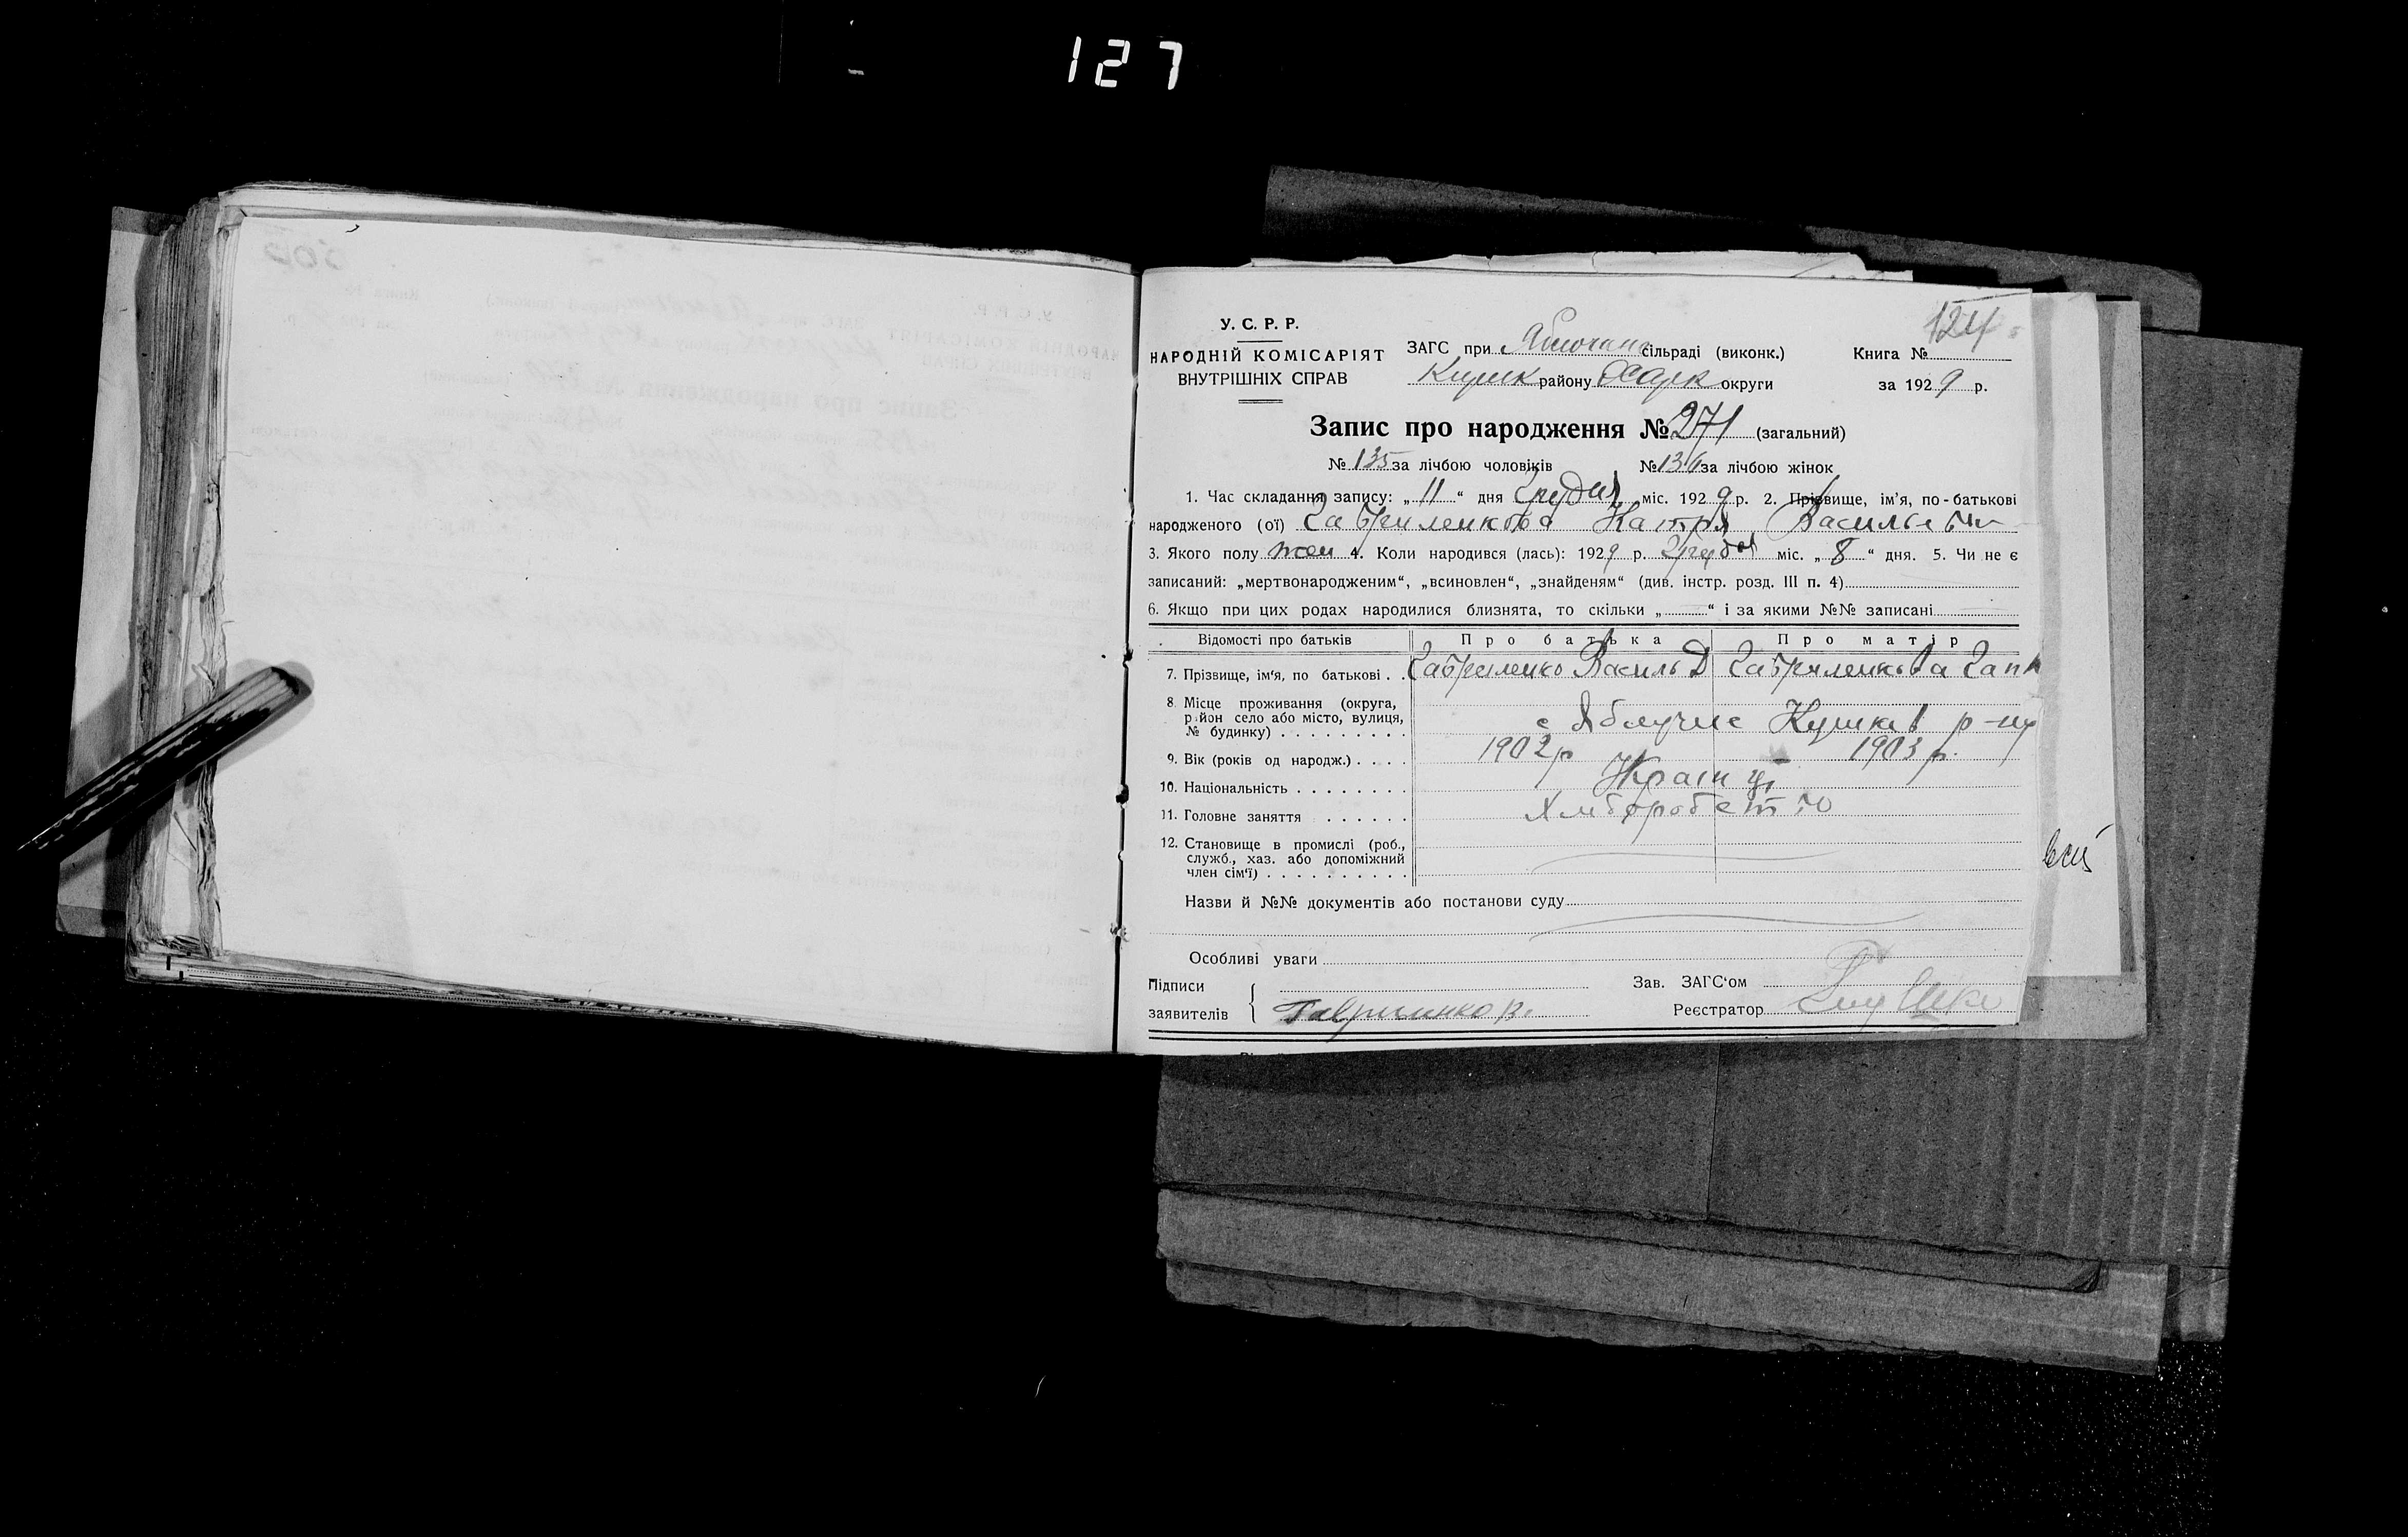 127
124
У. С. Р. Р.
НАРОДНІЙ КОМІСАРІЯТ
ВНУТРІШНІХ СПРАВ
ЗАГС при сільраді (виконк.)
району Харк округи
Книга №
за 1929 р.
Запис про народження № 271 (загальний)
№ 135 за лічбою чоловіків № 136 за лічбою жінок
1. Час складання запису: „ 11 “ дня Грудня міс. 1929 р. 2. Прізвище, ім’я, по-батькові
народженого (ої) Гавриленкова Катря Васильевн
3. Якого полу жен 4. Коли народився (лась): 1929 р. Грудня міс. „ 8 “ дня. 5. Чи не є
записаний: „мертвонародженим“, „всиновлен“, „знайденям“ (див. інстр. розд. III п. 4)
6. Якщо при цих родах народилися близнята, то скільки „ “ і за якими №№ записані
Відомості про батьків Про батька Про матір
7. Прізвище, ім‘я, по батькові . . Гавриленко Василь Д Гавриленкова Гапк
8. Місце проживання (округа,
район село або місто, вулиця,
№ будинку) . . . . . . . . . с Яблучне р-ну
9. Вік (років од народж.) . . . . 1902 р 1903 р.
10. Національність . . . . . . . .
11. Головне заняття . . . . . . Хліборобств
12. Становище в промислі (роб.,
служб., хаз. або допоміжний
член сім‘ї) . . . . . . . . . .
Назви й №№ документів або постанови суду
Особливі уваги
Підписи
заявителів Гавриленко В.
Зав. ЗАГС‘ом
Реєстратор